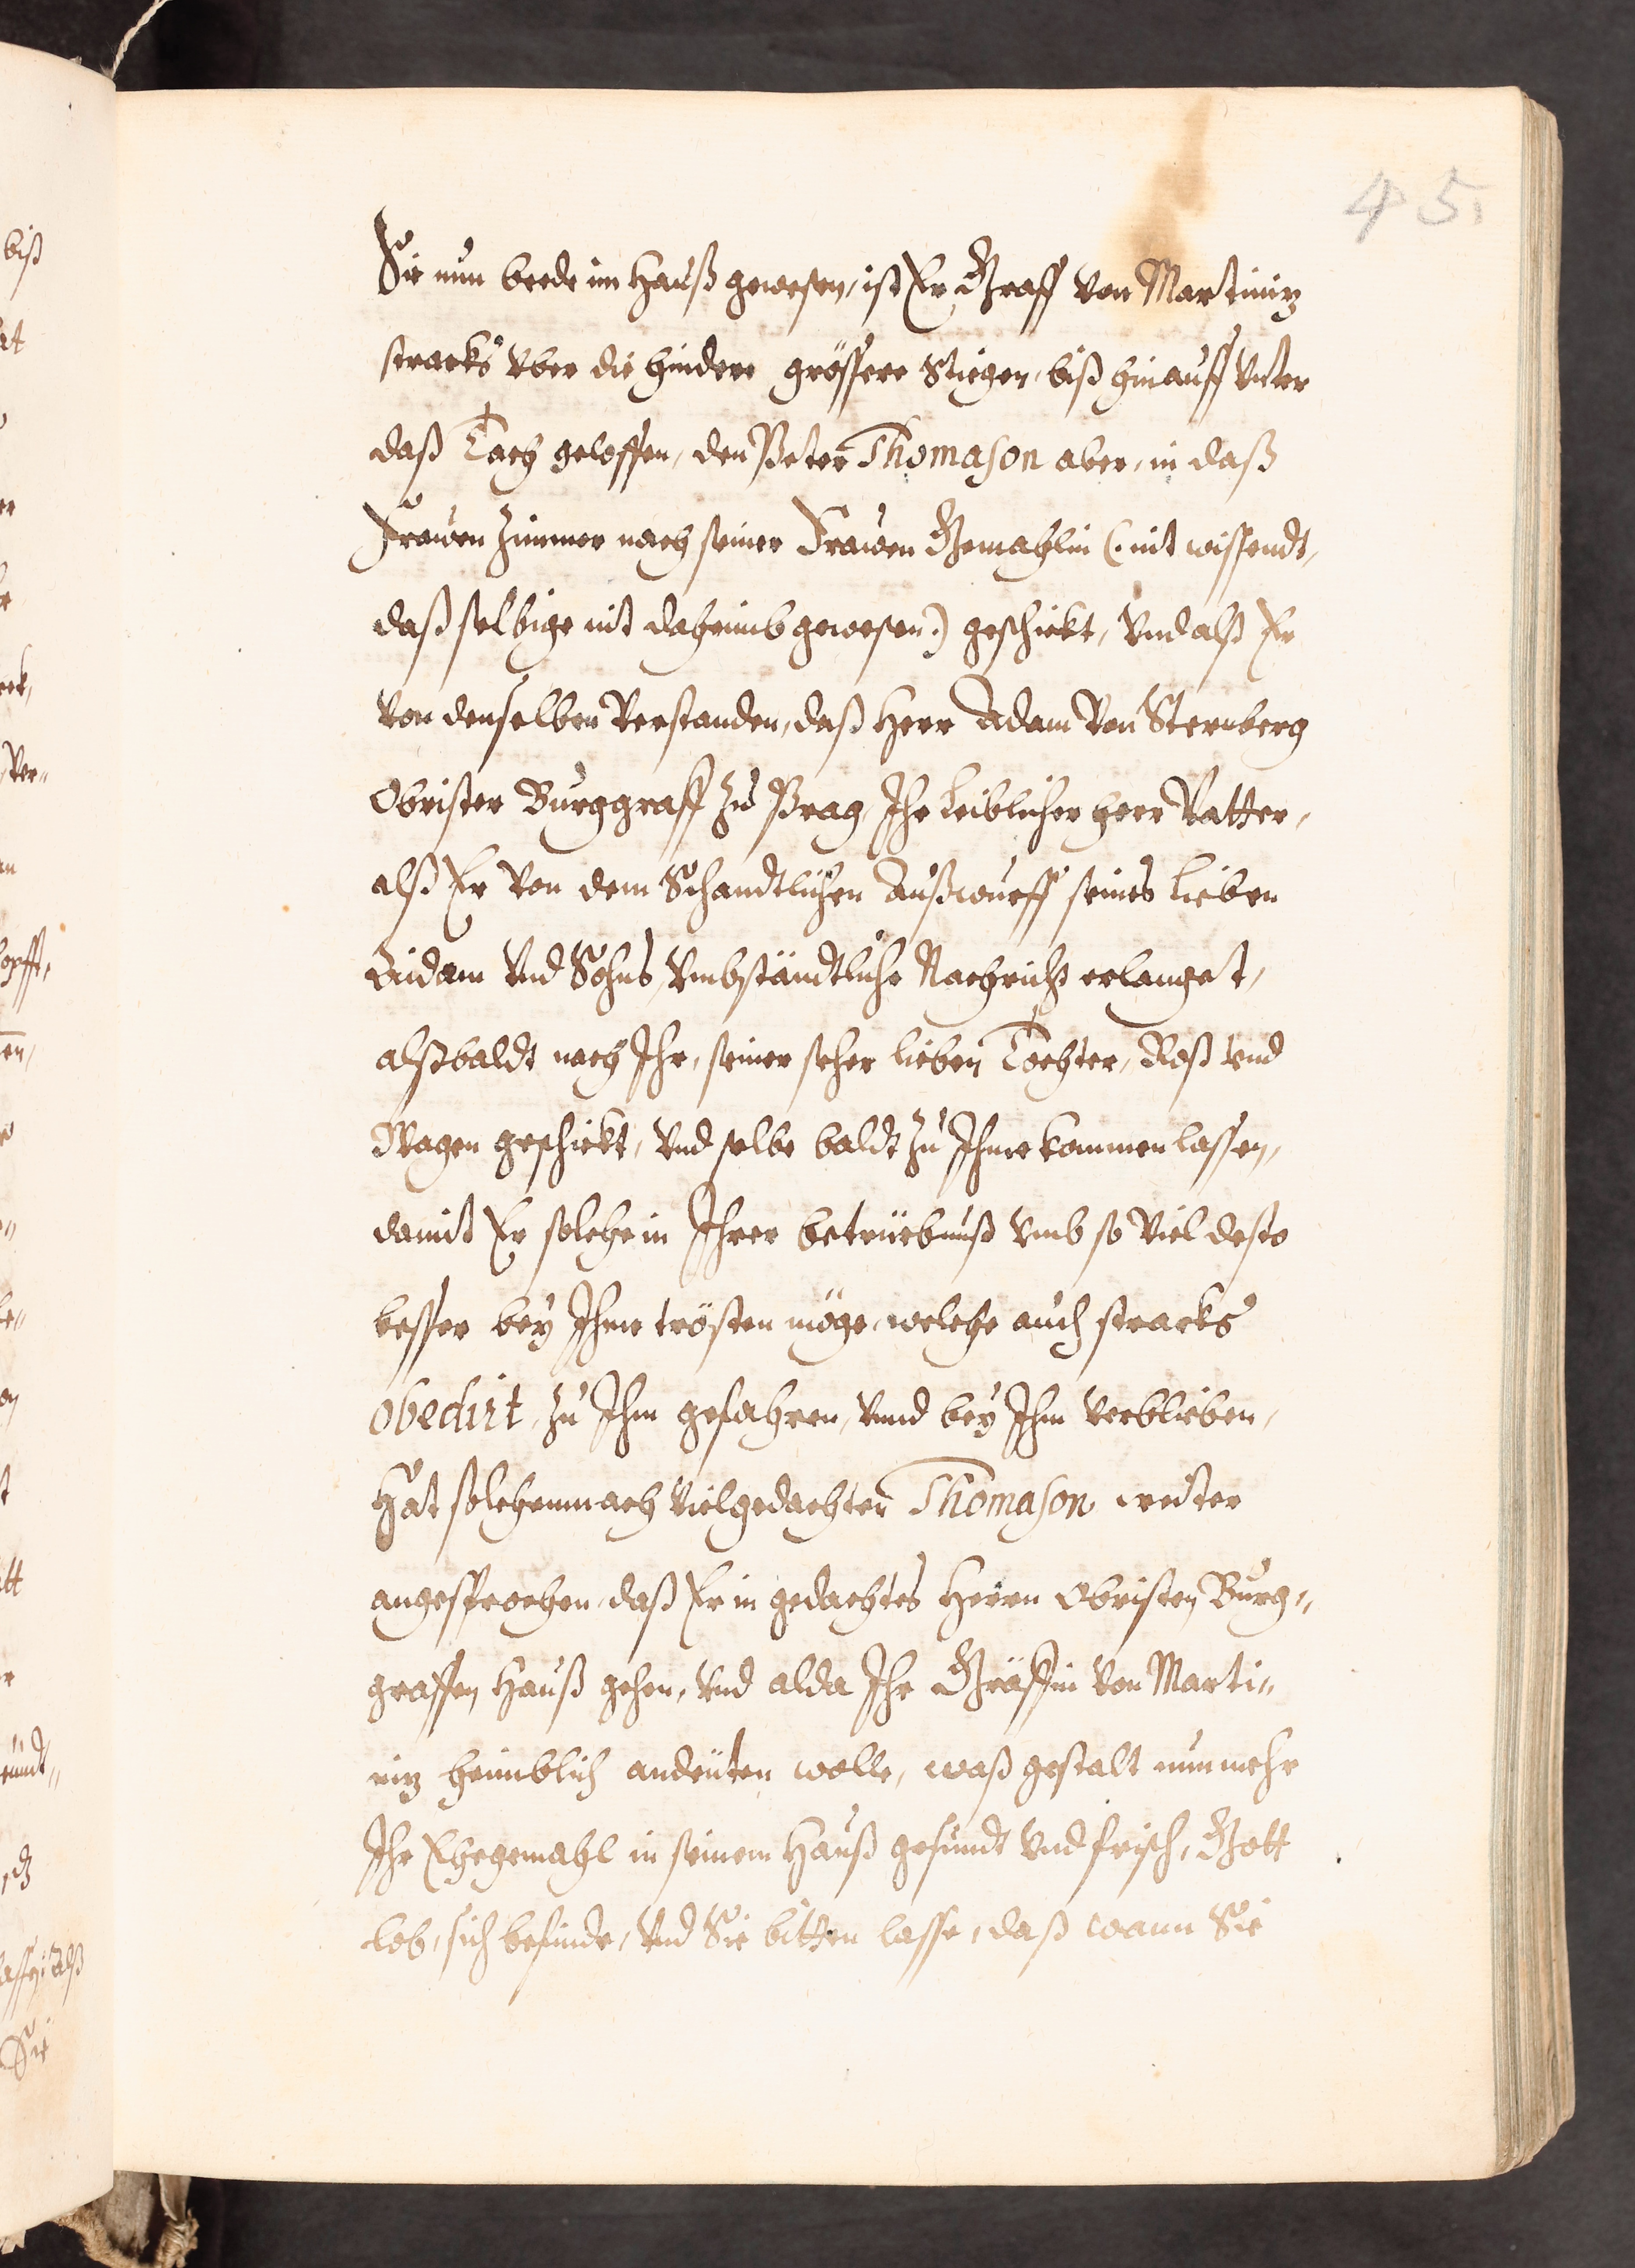 45.
Sie nun beede im Hauß gewesen, ist Er Graff von Martiniz
stracks vber die hindere grössere Stiegen, biß hinauff vnter
daß Tach geloffen, den Peter Thomason aber, in daß
Frawen Zimmer nach seiner Frawen Gemahlin (: nit wissendt,
daß selbige nit daheimb gewesen :) geschickt, Vnd alß Er
von denselben verstanden, daß Herr Adam von Sternberg
Obrister Burggraff zu Prag, Ihr leiblicher Herr Vatter,
alß Er von dem Schandtlichen Außwurff seines lieben
Aidam Vnd Sohns, vmbständtliche Nachricht erlanget,
alßbaldt nach Ihr, seiner seher lieben Tochter, Roß vnd
Wagen geschickt, Vnd selbe baldt zu Ihme kommen lassen,
damit Er solche in Ihrer betrüebnuß vmb so viel desto
besser bey Ihme trösten möge, welche auch stracks
obedirt, zu Ihm gefahren, vnnd bey Ihm verblieben,
Hat solchemnach vielgedachten Thomason weiter
angesprochen, daß Er in gedachtes Herrn Obristen Burg-
graffen Hauß gehen, Vnd alda Ihr Gräffin von Marti-
niz heimblich andeüten wolle, waß gestalt nunmehr
Ihr Ehegemahl in seinem Hauß gesundt Vnd frisch, Gott
lob, sich befinde, Vnd Sie bitten lasse, daß wann Sie
biß
Sie